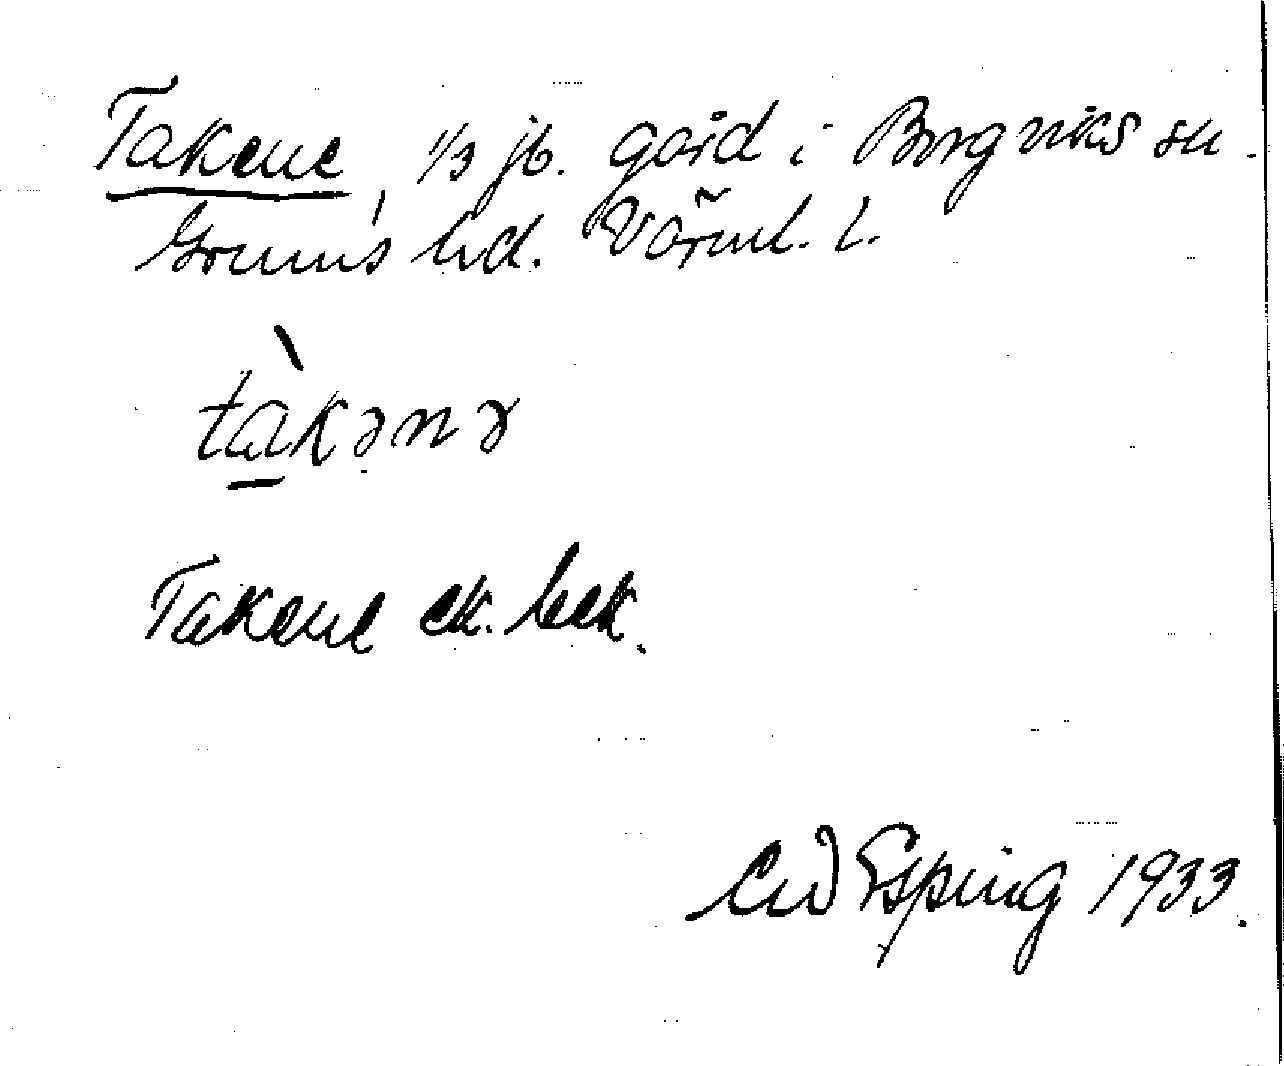 Takene, 1/3 jb. gård i Borgviks sn.
Grums hd. Värml. l.
tàkənə
Takene ek. bek.
Esping 1933.